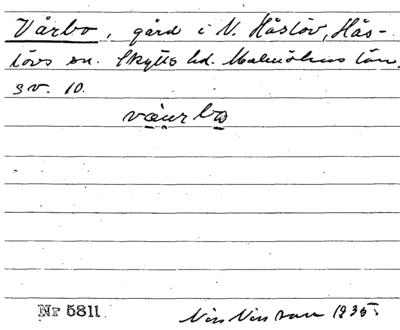 Vårbo, gård i V. Håslöv, Hås-
lövs sn. Skytts hd. Malmöhus län.
sv. 10.
væurbω
Nr 5811. Nils Nilsson 1935.